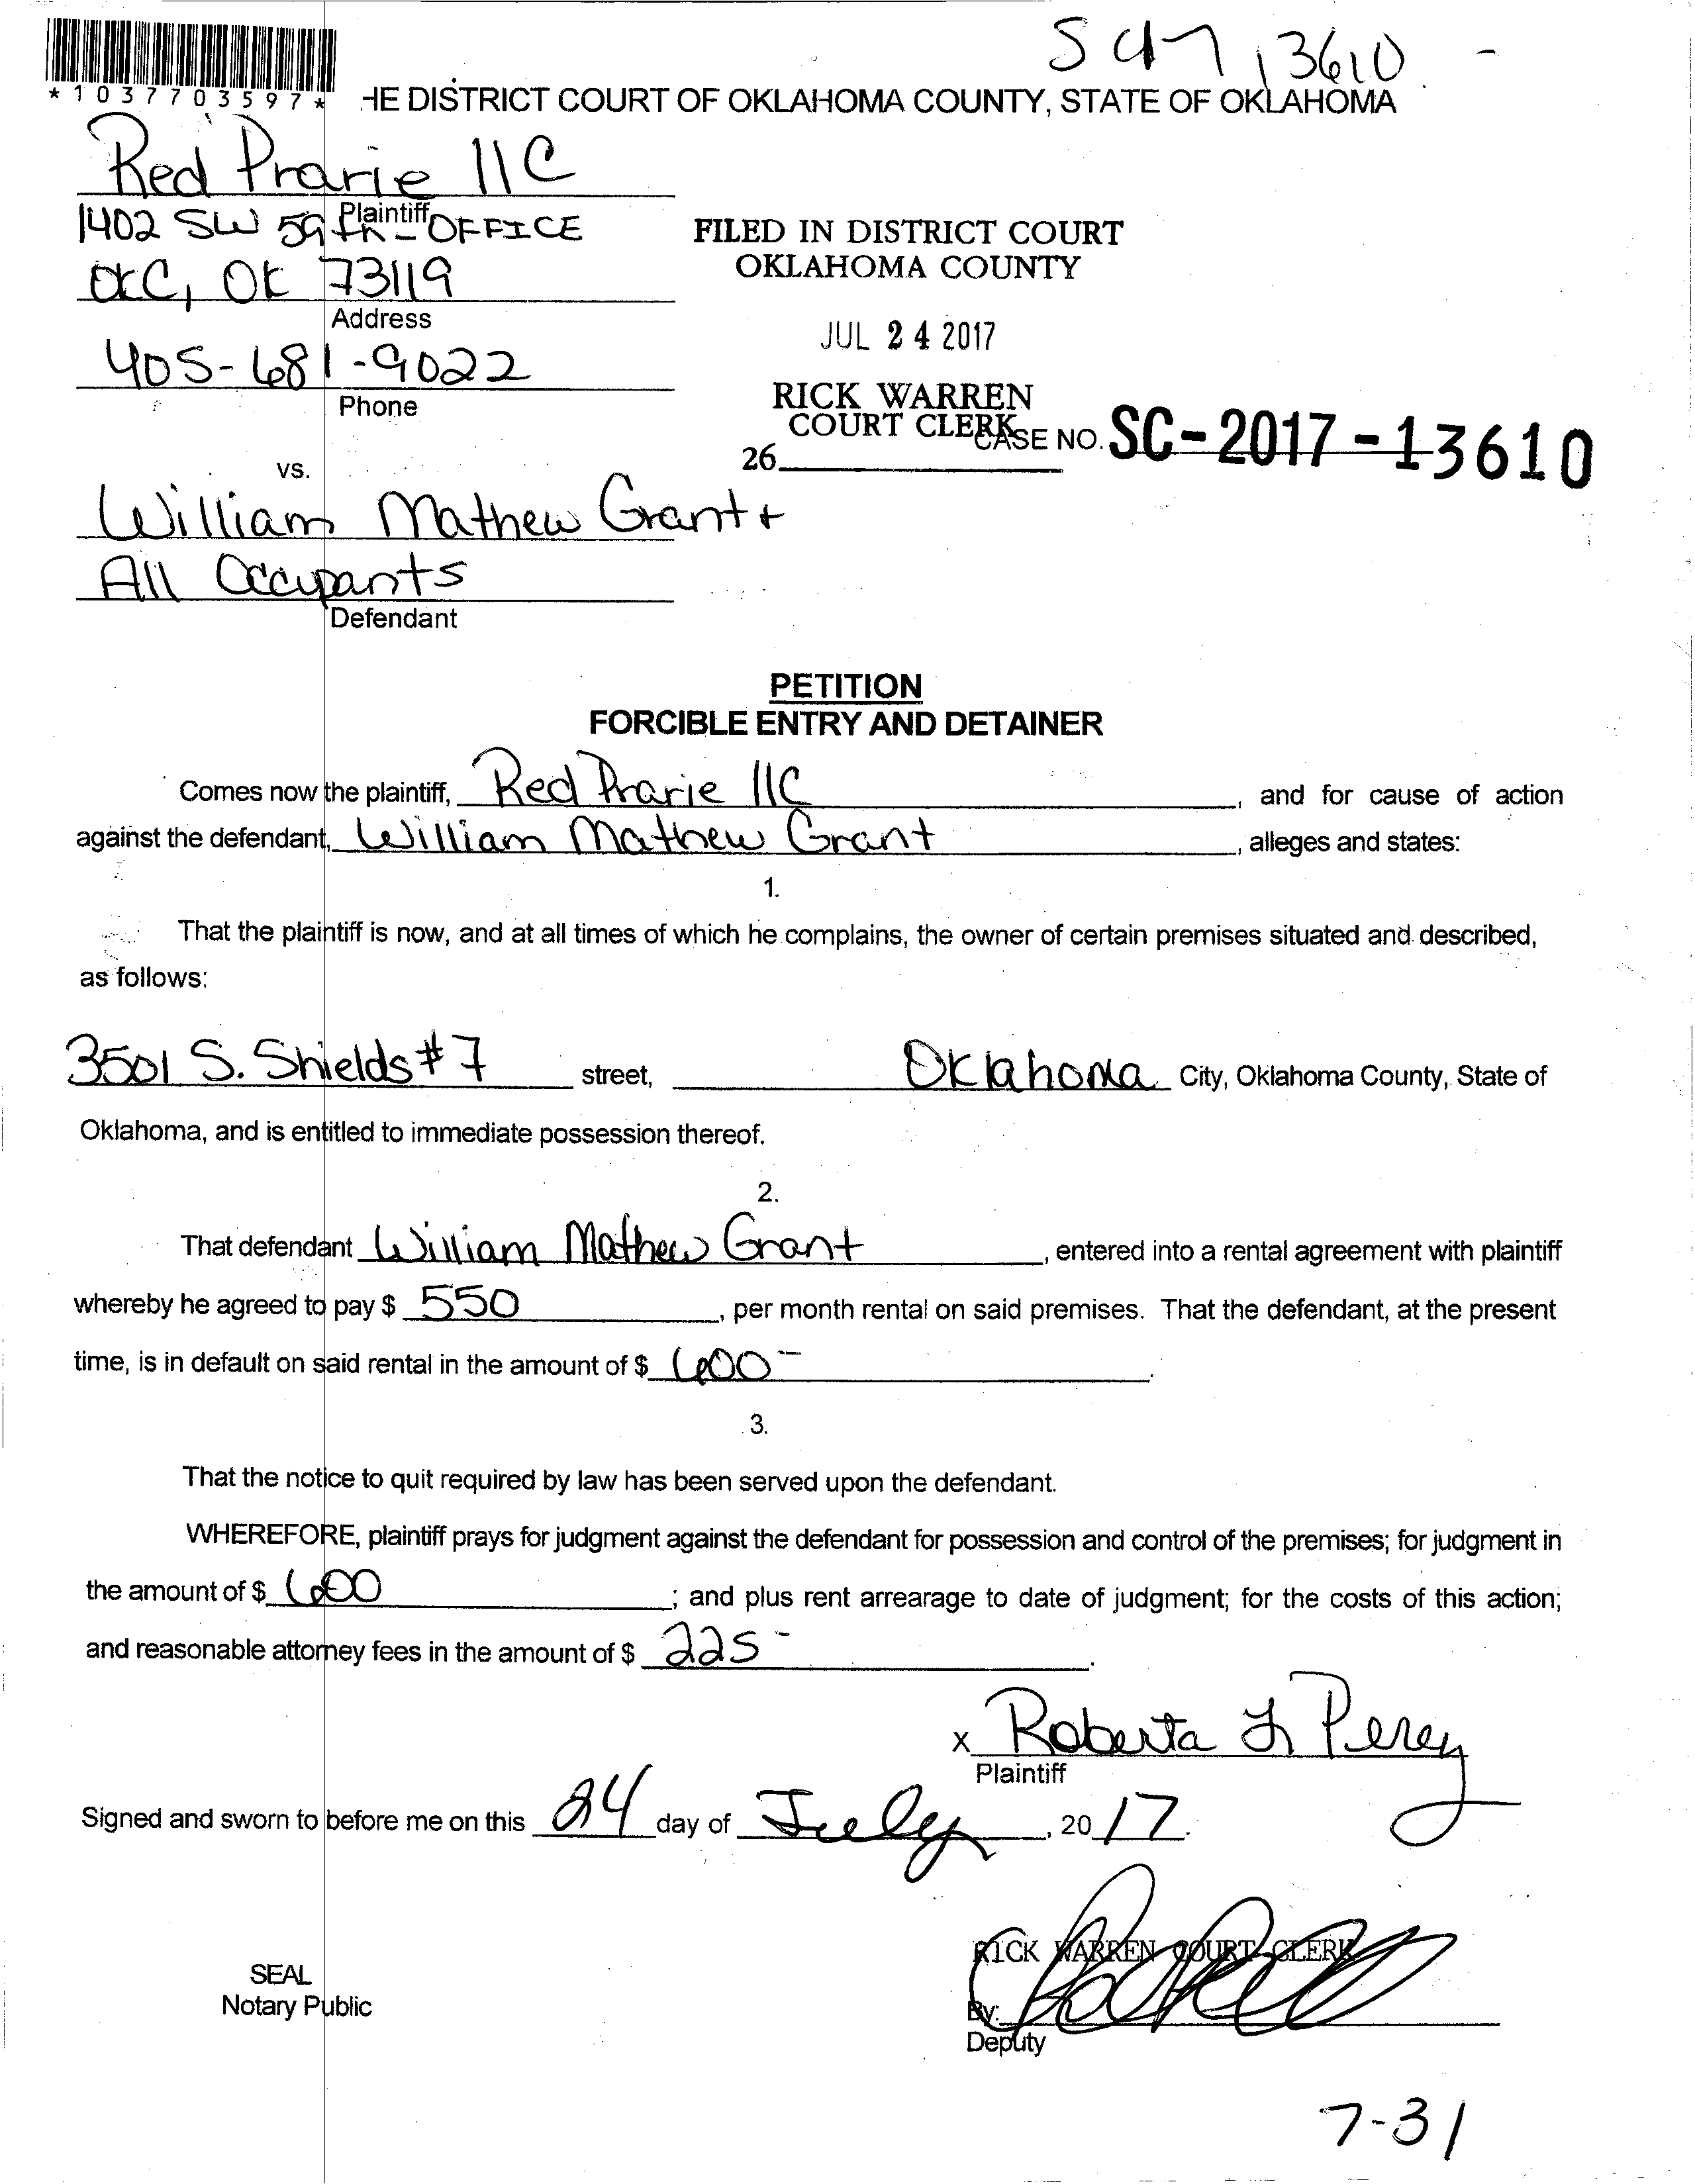 SC17 13610 -
*1037703597*
HE DISTRICT COURT OF OKLAHOMA COUNTY, STATE OF OKLAHOMA
Red Prarie llC
Plaintiff
1402 SW 59th - OFFICE
OKC, OK 73119
Address
405-681-9022
Phone
FILED IN DISTRICT COURT
OKLAHOMA COUNTY
JUL 24 2017
RICK WARREN
COURT CLERK
26
CASE NO. SC-2017-13610
vs.
William Mathew Grant +
All Occupants
Defendant
PETITION
FORCIBLE ENTRY AND DETAINER
Comes now the plaintiff, Red Prarie llC, and for cause of action
against the defendant, William Mathew Grant, alleges and states:
1.
That the plaintiff is now, and at all times of which he complains, the owner of certain premises situated and described,
as follows:
3501 S. Shields #7 street, Oklahoma City, Oklahoma County, State of
Oklahoma, and is entitled to immediate possession thereof.
2.
That defendant William Mathew Grant, entered into a rental agreement with plaintiff
whereby he agreed to pay $ 550, per month rental on said premises. That the defendant, at the present
time, is in default on said rental in the amount of $ 600-.
3.
That the notice to quit required by law has been served upon the defendant.
WHEREFORE, plaintiff prays for judgment against the defendant for possession and control of the premises; for judgment in
the amount of $ 600; and plus rent arrearage to date of judgment; for the costs of this action;
and reasonable attorney fees in the amount of $ 225-.
x Roberta L Perez
Plaintiff
Signed and sworn to before me on this 24 day of July, 2017.
RICK WARREN COURT CLERK
SEAL
Notary Public
By:
Deputy
7-31